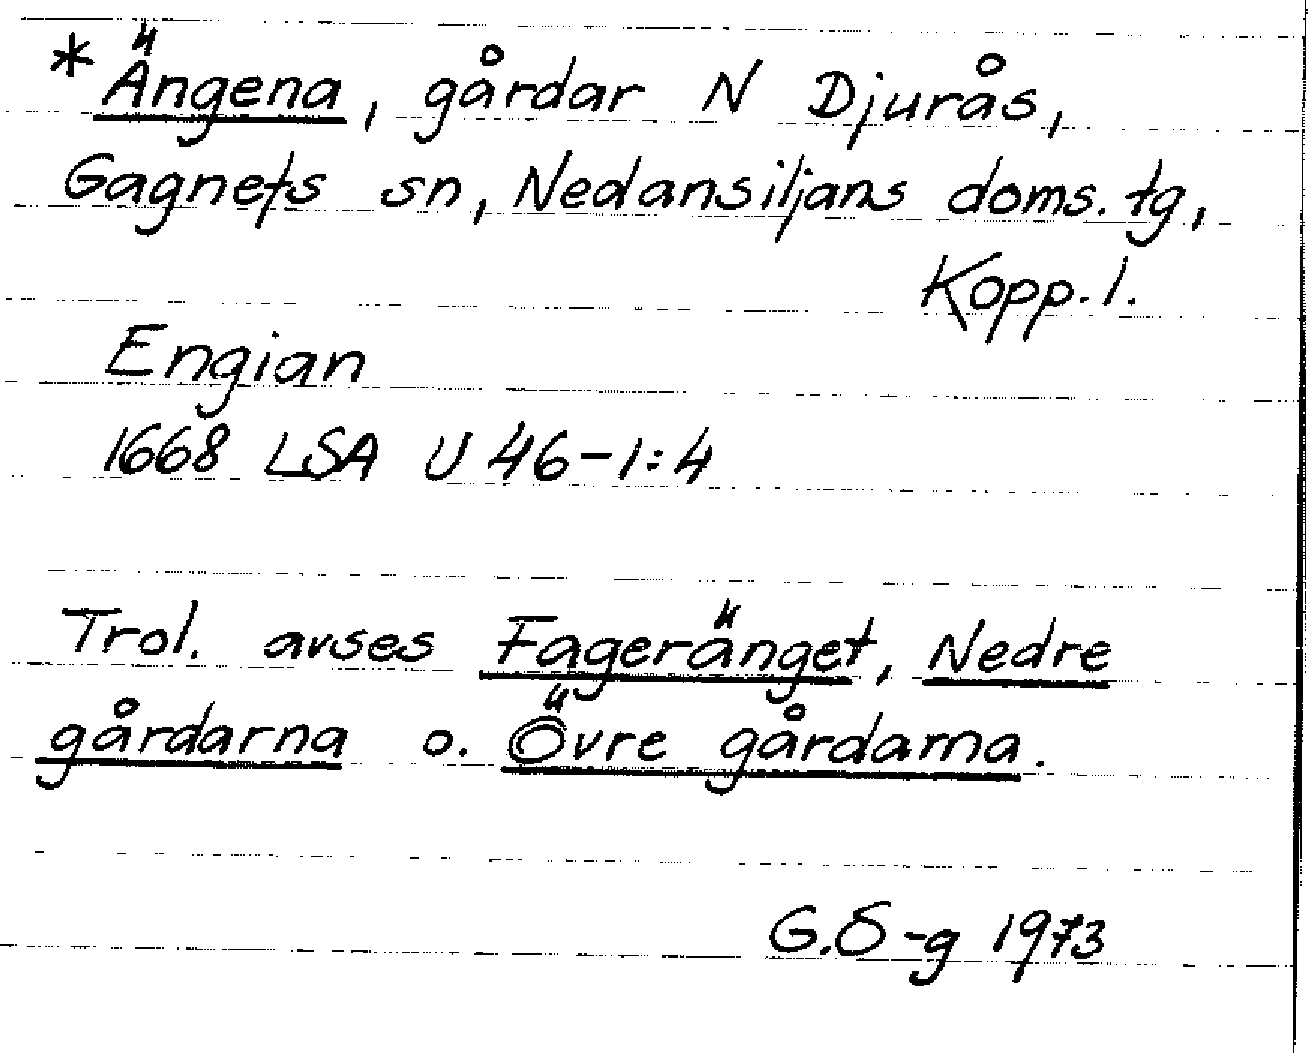 * Ängena, gårdar N Djurås,
Gagnefs sn, Nedansiljans doms. tg,
Kopp. l.
Engian
1668 LSA U 46-1:4
Trol. avses Fageränget, Nedre
gårdarna o. Övre gårdarna.
G.Ö-g 1973